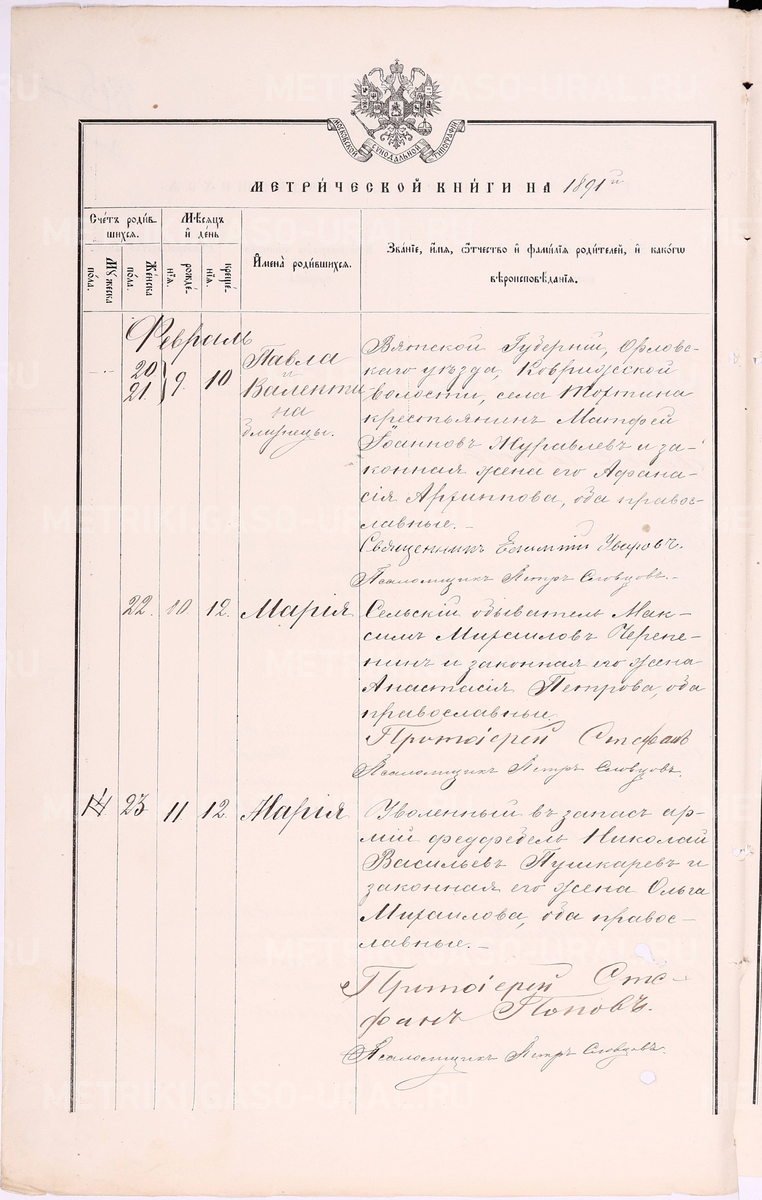 МОСКОВСКОЙ СѴНОДАЛЬНОЙ ТИПОГРАФІИ
МЕТРИ́ЧЕСКОЙ КНИ́ГИ НА 1891й
Сче́тъ роди́в-
шихся.
Мѣ́сяцъ
и҆ де́нь
И҆мена̀ роди́вшихся.
Зва́нїе, и҆́мѧ, ѻ҆́тчество и҆ фами́лїѧ роди́телей, и҆ како́гѡ
вѣроисповѣ́данїѧ.
Мꙋ́жеска
по́ла.
Же́нска
по́ла.
рожде́-
нїѧ.
креще́-
нїѧ.
Февраль
20
21
9.
10
Павла
и
Валенти-
на
близнецы.
Вятской Губерніи, Орловс-
каго уѣзда, Ковридской
волости, села
крестьянинъ Матфей
Іоанновъ Журавлевъ и за-
конная жена его Афана-
сія Архиппова, оба правос-
лавные.-
Священникъ Евлампій Уваровъ.
Псаломщикъ Петръ Словцовъ.-
22.
10
12.
Марія
Сельскій обыватель Мак-
симъ Михаиловъ Черепе-
нинъ и законная его жена
Анастасія Петрова, оба
православные.
Протоіерей Стефанъ
Псаломщикъ Петръ Словцовъ.
14
23
11
12.
Марія
Уволенный въ запасъ ар-
міи федфебель Николай
Васильевъ Пушкаревъ и
законная его жена Ольга
Михаилова, оба правос-
лавные.-
Протоіерей Сте-
фанъ Поповъ.
Псаломщикъ Петръ Словцовъ.
METRIKI.GASO-URAL.RU